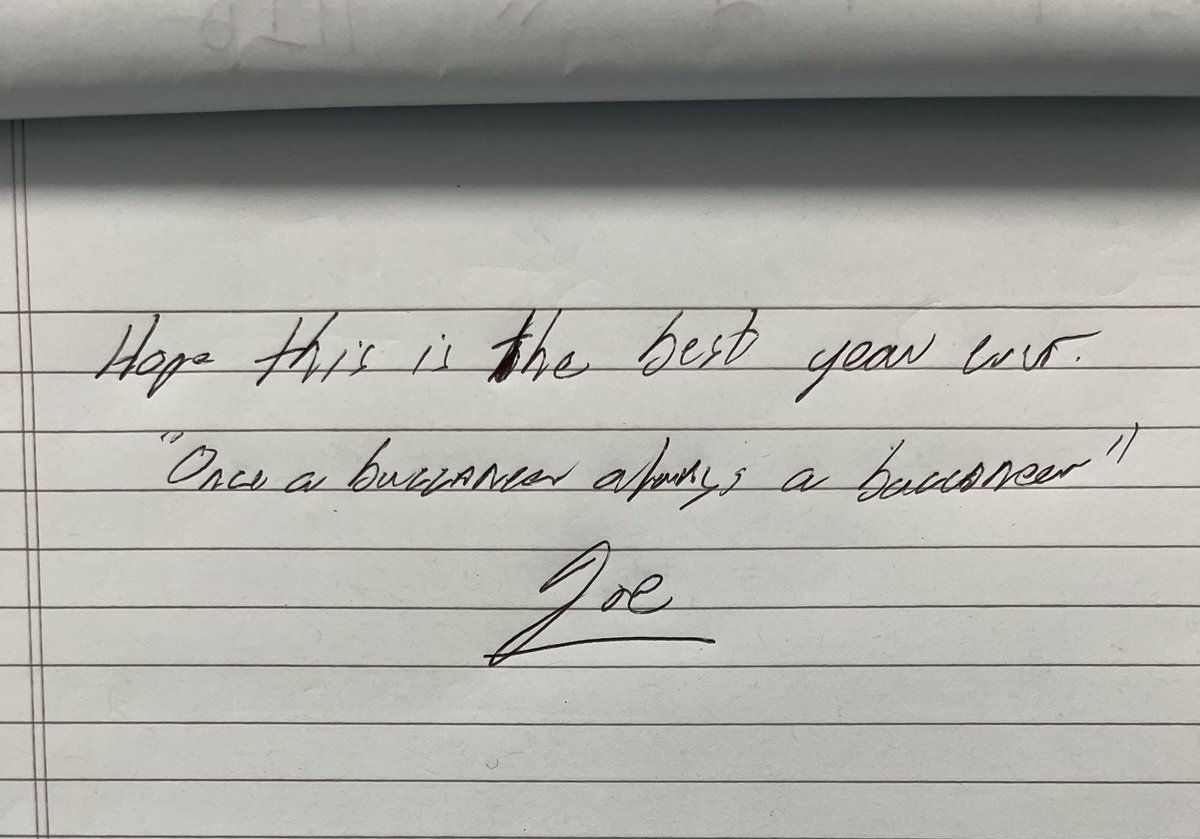 Hope this is the best year ever.
"Once a buccaneer always a buccaneer"
Joe